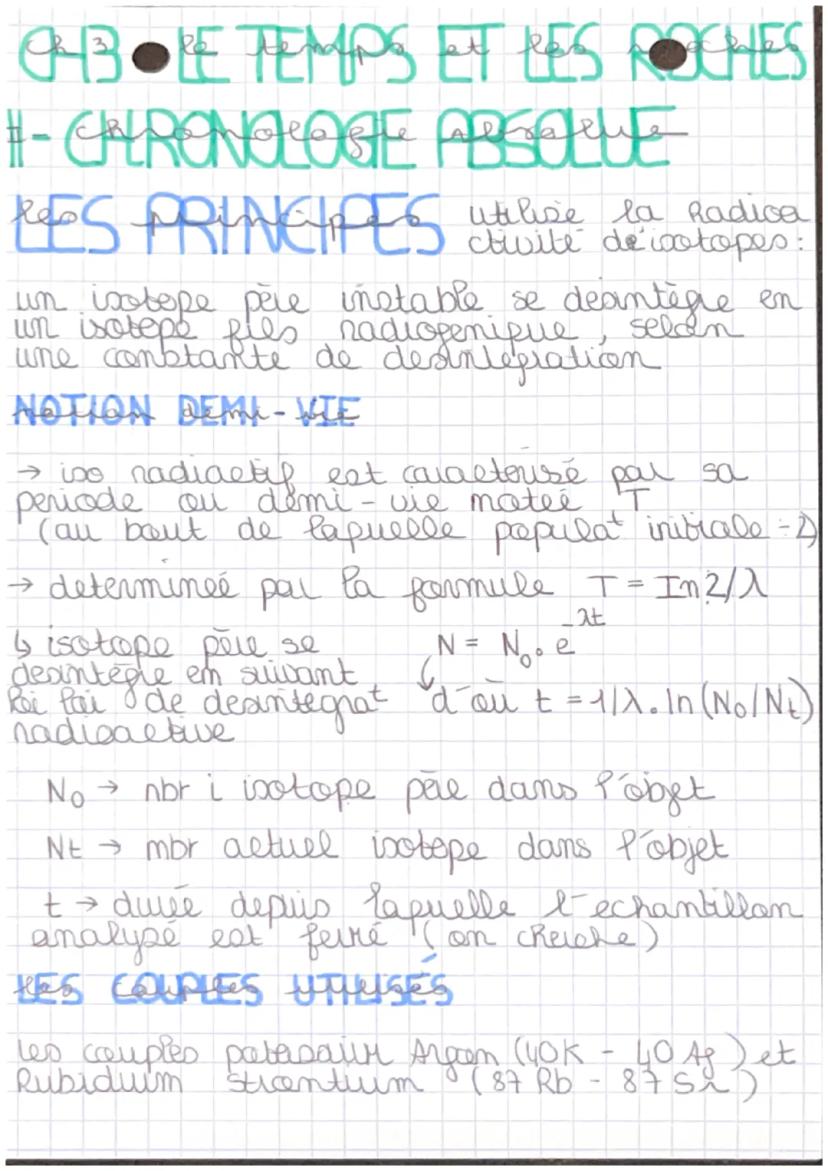 CH3 • LE TEMPS ET LES ROCHES
II- CHRONOLOGIE ABSOLUE
LES PRINCIPES utilise la Radioa
ctivité de isotopes :
un isotope père instable se desintègre en
un isotope fils radiogenique, selon
une constante de desintegration
NOTION DEMI-VIE
→ iso radiactif est caracterisé par sa
periode ou demi-vie notée T
(au bout de laquelle populat° initiale ÷2)
→ determineé par la formule T = In2/λ
↳ isotope père se N = N₀. e^-λt
desintègre en suivant
loi de desintegrat° d'où t = 1/λ. ln(N₀/Nt)
radioactive
N₀ → nbr i isotope père dans l'objet
Nt → nbr actuel isotope dans l'objet
t → durée depuis laquelle l'echantillon
analysé est fermé (on cherche)
LES COUPLES UTILISÉS
les couples potassium Argon (40K - 40 Ag) et
Rubidium strontium (87 Rb - 87 Sr)